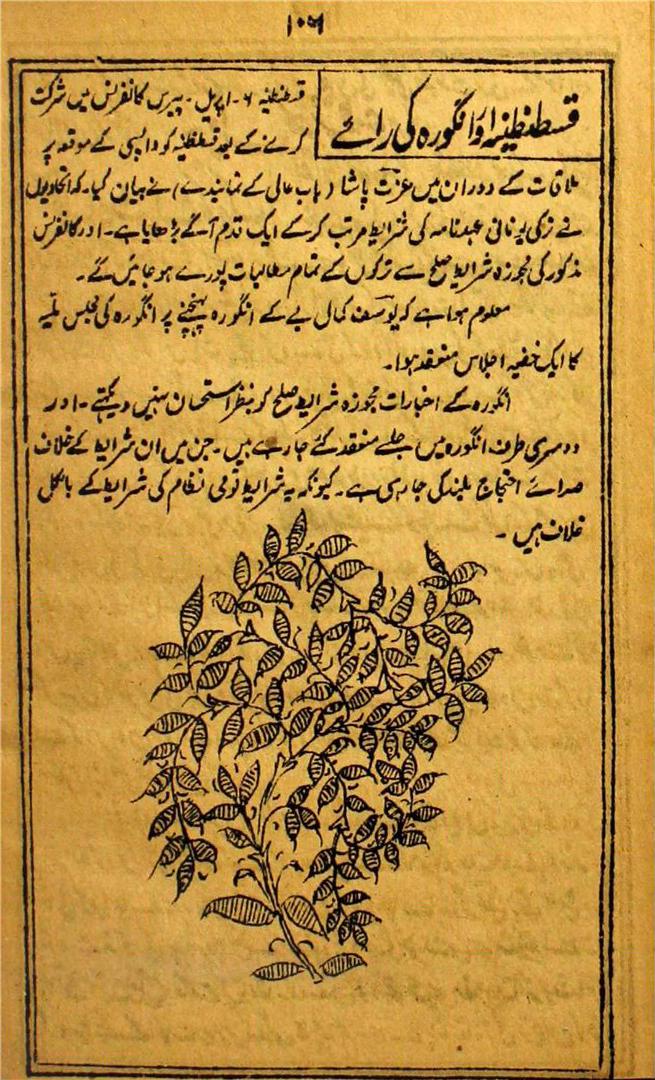 ۱۰۵۹
قسطنطنیہ اور انگورہ کی رائے
قسطنطنیہ ۶۔ اپریل۔ پیرس کانفرنس میں شرکت
کرنے کے بعد قسطنطنیہ کو واپسی کے موقعہ پر
ملاقات کے دوران میں عزت پاشا (باب عالی کے نمایندے) نے بیان کیا۔ کہ اتحادیوں
نے ترکی یونانی عہدنامہ کی شرایط مرتب کرکے ایک قدم آگے بڑھایا ہے۔ اور کانفرنس
مذکور کی مجوزہ شرایط صلح سے ترکوں کے تمام مطالبات پورے ہو جائیں گے۔
معلوم ہوا ہے کہ یوسف کمال بے کے انگورہ پہنچنے پر انگورہ کی مجلس ملیہ
کا ایک خفیہ اجلاس منعقد ہوا۔
انگورہ کے اخبارات مجوزہ شرایط صلح کو بنظر استحسان نہیں دیکہتے۔ اور
دوسری طرف انگورہ میں جلسے منعقد کئے جا رہے ہیں۔ جن میں ان شرایط کے خلاف
صدائے احتجاج بلند کی جا رہی ہے۔ کیونکہ یہ شرایط قومی نظام کی شرایط کے بالکل
خلاف ہیں۔